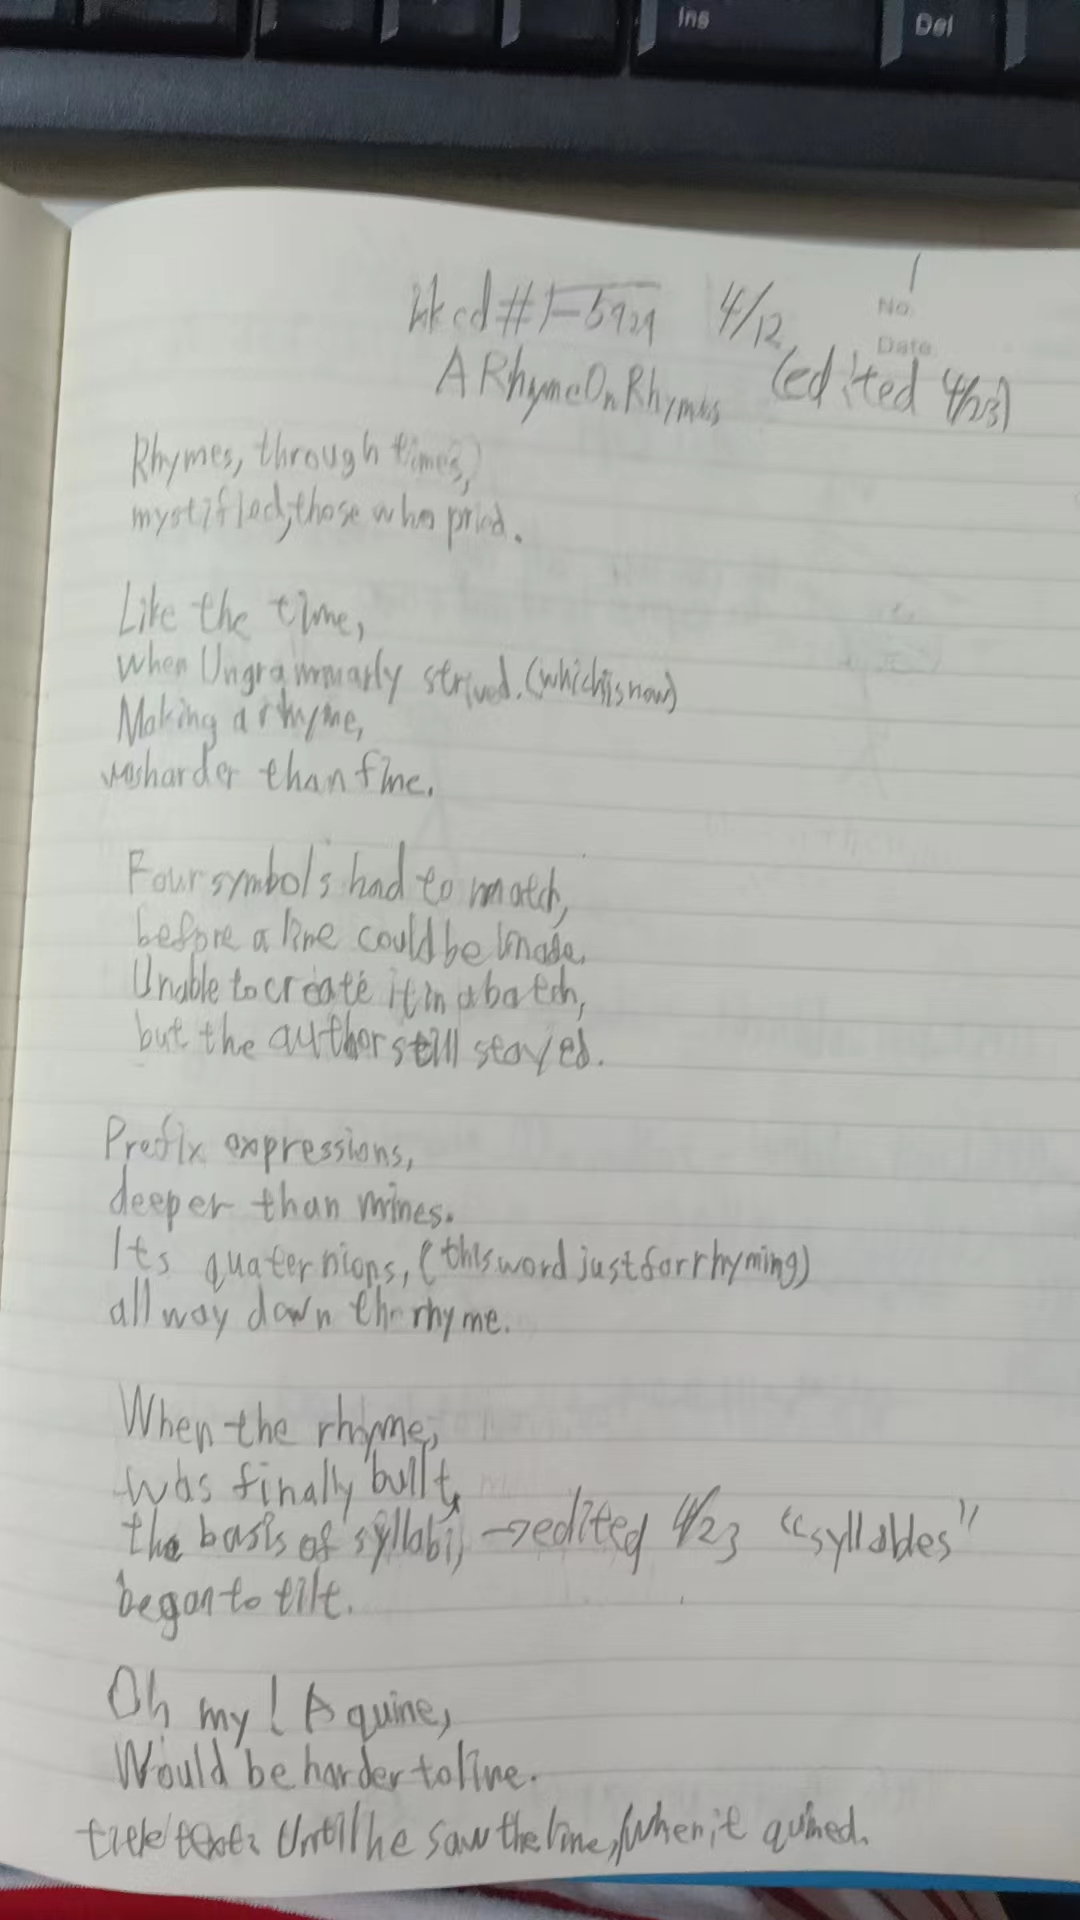 Ins Del
1
#1-5929 4/12 No.
Date
A Rhyme On Rhymes (edited 4/23)
Rhymes, through times,
mystified, those who pried.
Like the time,
when Ungrammarly strived. (which is now)
Making a rhyme,
was harder than fine.
Four symbols had to match,
before a line could be made.
Unable to create it in a batch,
but the author still stayed.
Prefix expressions,
deeper than mines.
Its quaternions, (this word just for rhyming)
all way down the rhyme.
When the rhyme,
was finally built,
the basis of syllabi, →edited 4/23 "syllables"
began to tilt.
Oh my! A quine,
Would be harder to line.
title text: Until he saw the line, when it quined.